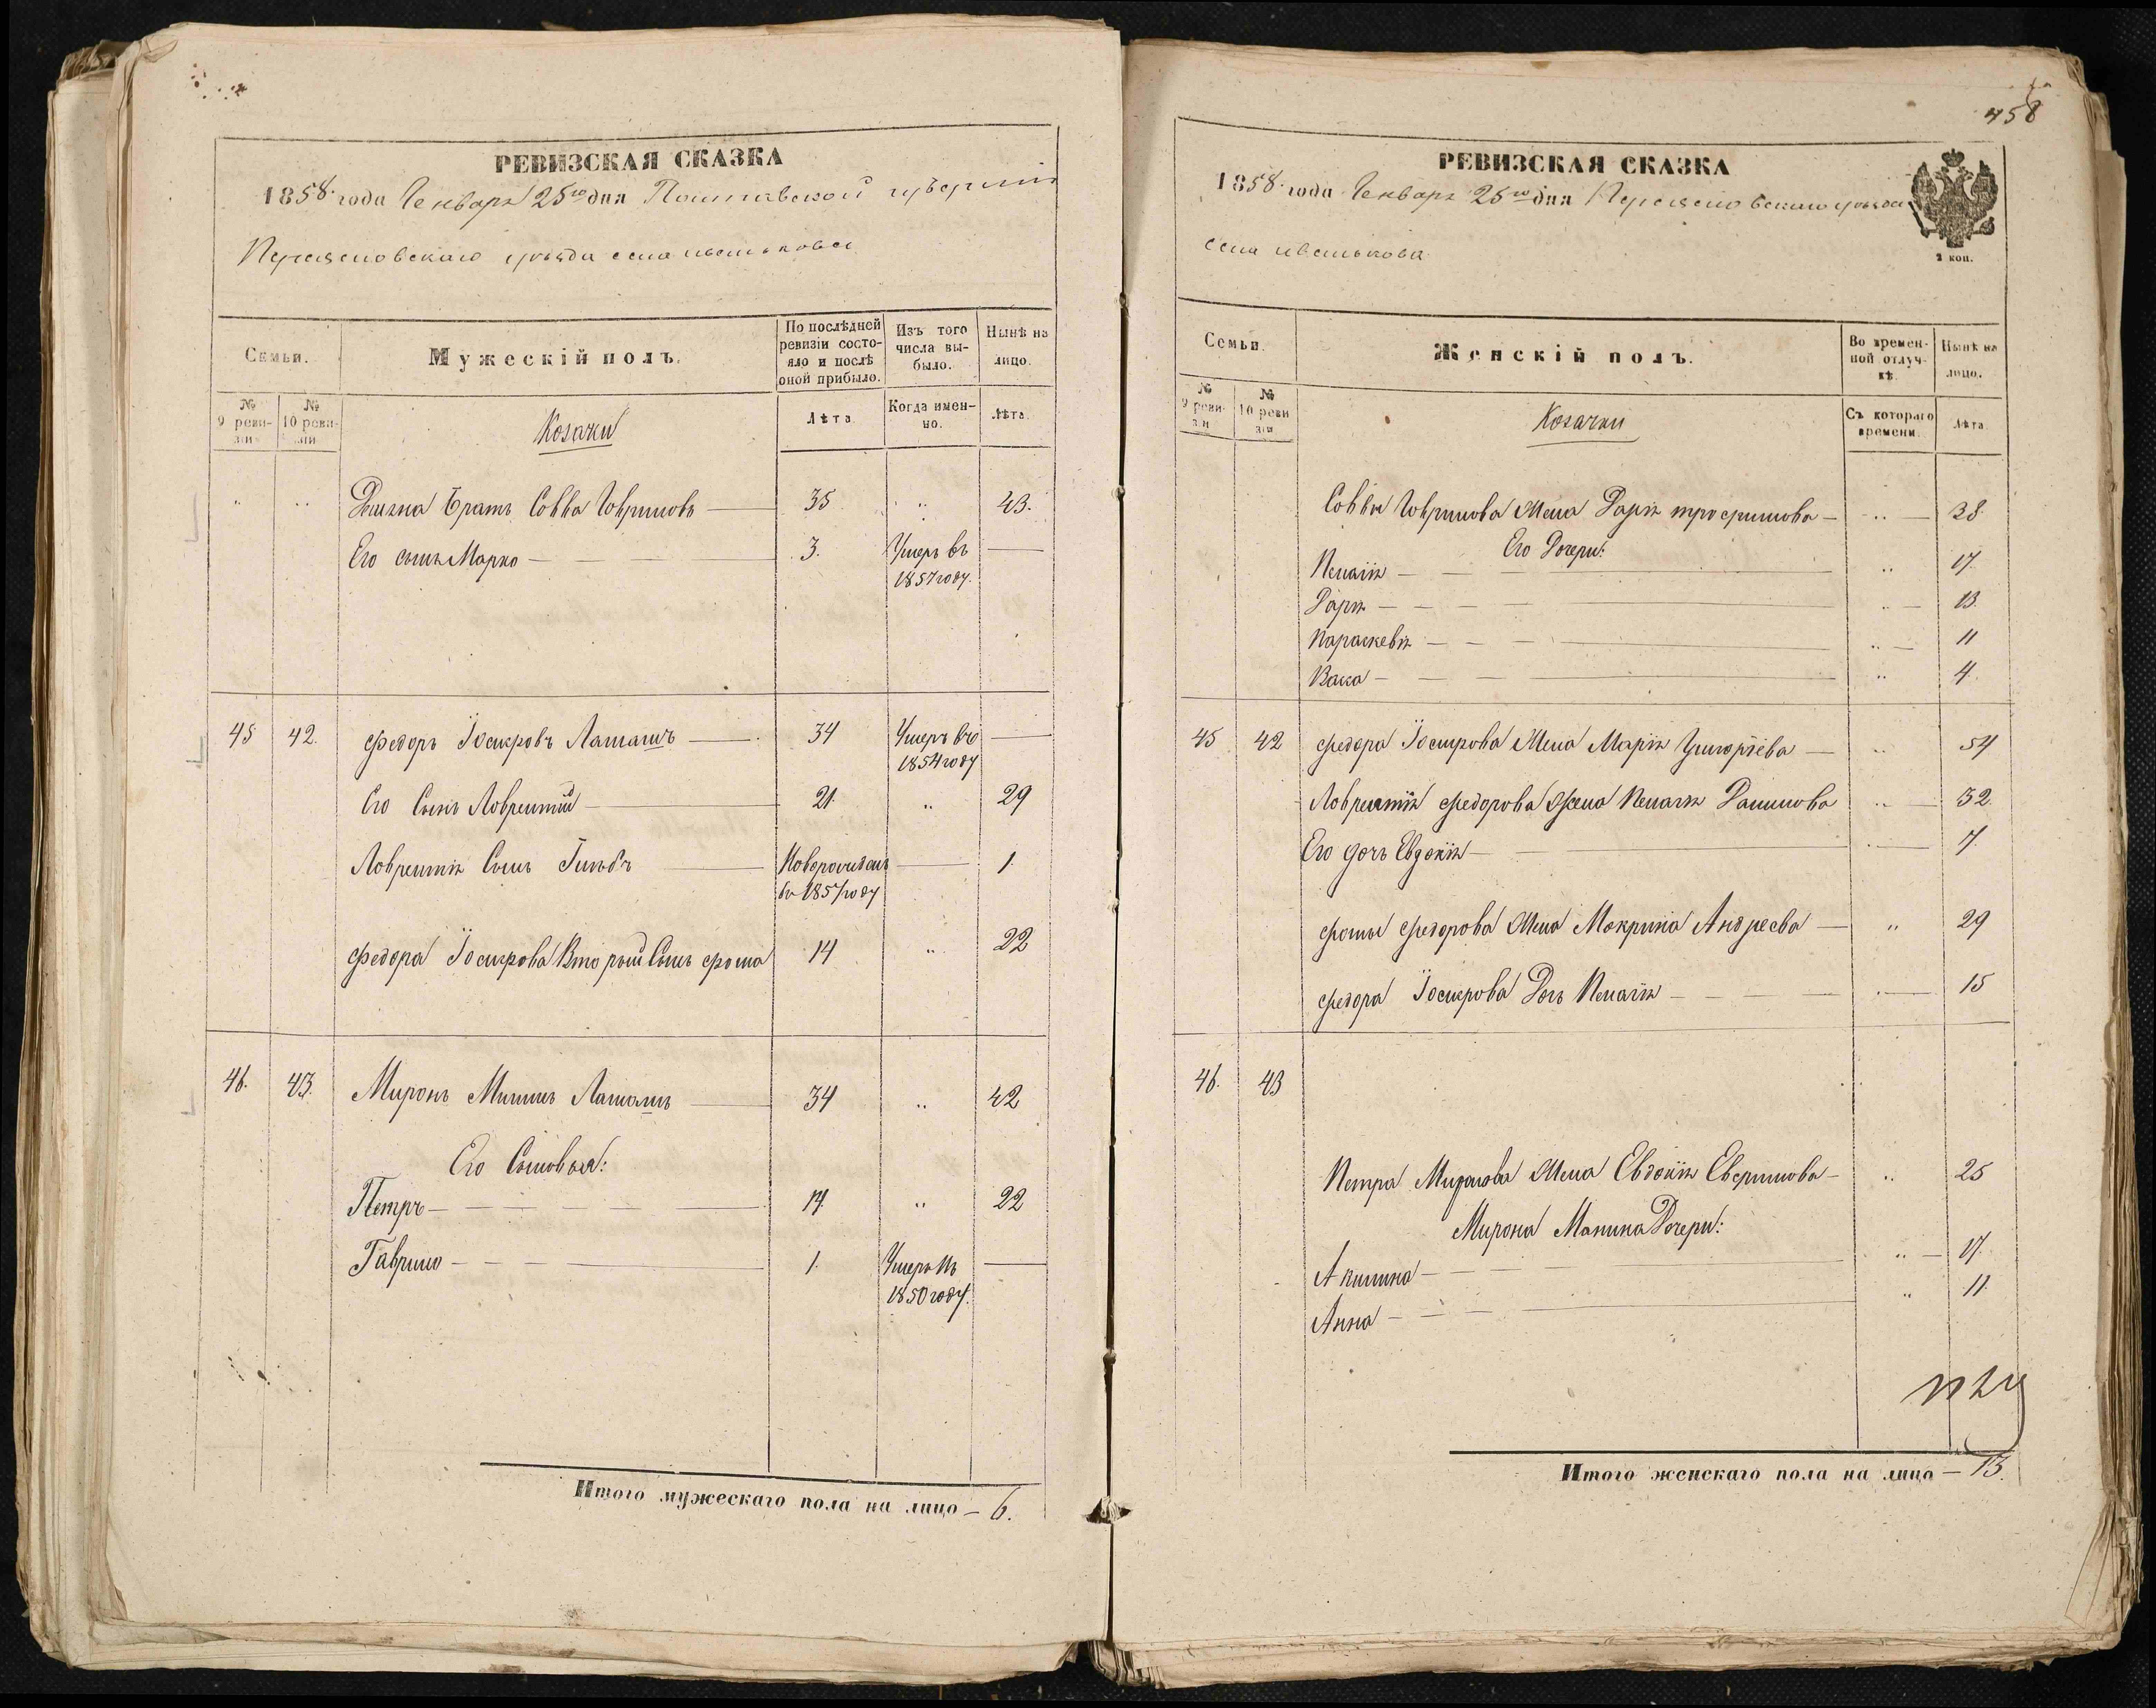 РЕВИЗСКАЯ СКАЗКА
1858 года Генваря 25го дня Полтавской губернии
Переяславскаго уѣзда села
Семьи.
Мужескій полъ.
По послѣдней ревизіи состояло и послѣ оной прибыло.
Изъ того числа выбыло.
Нынѣ на лицо.
№ 9 ревизіи
№ 10 ревизіи
Козаки
Лѣта
Когда именно.
Лѣта
Братъ Савва Гаврилов 35 43.
Его сынъ Марко 3. Умеръ въ
1857 году.
45 42. Федоръ Іосифовъ Латашъ 34 Умеръ въ
1854 году
Его Сынъ Лаврентій 21. 29
Лаврентія Сынъ Глѣбъ Новорожденъ 1.
въ 1857 году
Федора Іосифова Вторый Сынъ Фома 14 22
46. 43. Миронъ Латашъ 34 42
Его Сыновья:
Петръ 14. 22
Гаврило 1. Умеръ въ
1850 году.
Итого мужескаго пола на лицо — 6.
458
РЕВИЗСКАЯ СКАЗКА
1858 года Генваря 25го дня Переяславскаго уѣзда
села
2 коп.
Семьи.
Женскій полъ.
Во временной отлучкѣ.
Нынѣ на лицо.
№ 9 ревизіи
№ 10 ревизіи
Козачки
Съ котораго времени.
Лѣта
Саввы Гаврилова Жена Дарія Трофимова 38.
Его Дочери:
Пелагія 17.
Дарія 13.
Параскевія 11
4.
45 42 Федора Іосифова Жена Марія Григоріева 54
Лаврентія Федорова Жена Пелагія Данилова 32.
Его дочь Евдокія 7.
Фомы Федорова Жена Макрина Андреева 29
Федора Іосифова Дочь Пелагія 15
46. 43
Петра Миронова Жена Евдокія 25
Мирона Дочери:
Акилина 17.
Анна 11.
Итого женскаго пола на лицо — 13.